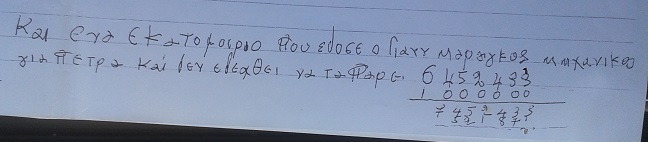 Και ενα εκατομοιριο που εδοσε ο Γιανν Μαρουκος μηχανικοσ
για πετρα και δεν εδεχθει να τα παρει 6 452 433
1 000000
7 452 433